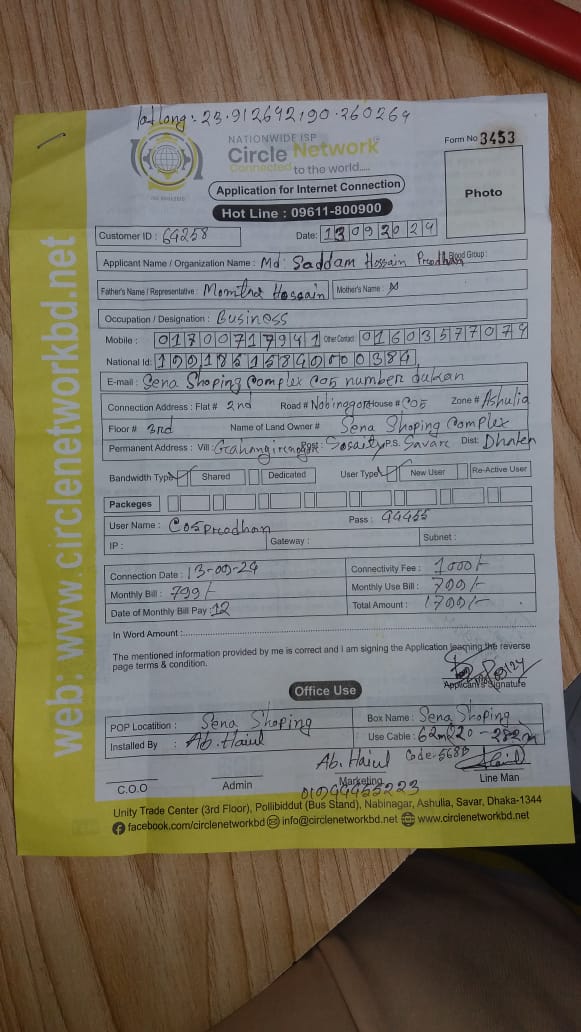 lat long: 23.912692,90.260269
NATIONWIDE ISP
Circle Network
Connected to the world.....
Form No 3453
Application for Internet Connection
Photo
Hot Line : 09611-800900
Customer ID : 64258
Date: 13092024
Applicant Name / Organization Name : Md: Saddam Hossain Preodhan Blood Group :
Father's Name / Representative : Hossain Mother's Name :
Occupation / Designation : Business
Mobile : 01700717941 Other Contact 01603577079
National Id:
E-mail : Sena Shoping Complex C05 number dukan
Connection Address : Flat # 2nd Road # Nobinggor House # C05 Zone # Ashulia
Floor # 3rd Name of Land Owner # Sena Shoping Complex
Permanent Address : Vill: Post: Sosaity P.S. Savar Dist: Dhaka
Bandwidth Type Shared Dedicated User Type New User Re-Active User
Packeges
User Name : C05Preodhan Pass : 94455
IP : Gateway : Subnet :
Connection Date : 13-09-24 Connectivity Fee : 1000/-
Monthly Bill : 799/- Monthly Use Bill : 700/-
Date of Monthly Bill Pay : 12 Total Amount : 1700/-
In Word Amount :
The mentioned information provided by me is correct and I am signing the Application leaning the reverse
page terms & condition.
Applicant's Signature
Office Use
POP Locatition : Sena Shoping Box Name : Sena Shoping
Installed By : Ab. Haiul Use Cable :
Ab. Haiul Code-5685
C.O.O Admin Marketing Line Man
01944455223
Unity Trade Center (3rd Floor), Pollibiddut (Bus Stand), Nabinagar, Ashulia, Savar, Dhaka-1344
facebook.com/circlenetworkbd info@circlenetworkbd.net www.circlenetworkbd.net
web: www.circlenetworkbd.net